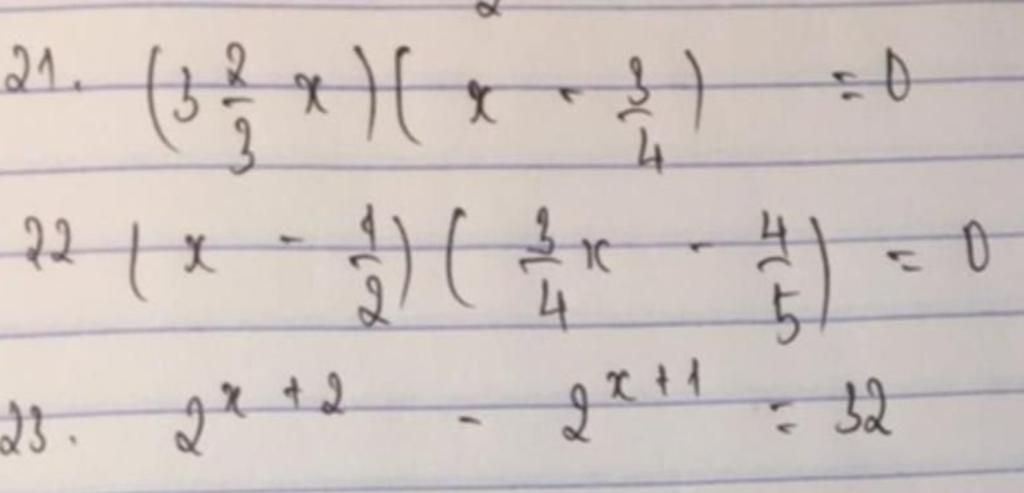 21. (3 2/3 x)(x - 3/4) = 0
22 (x - 1/2)(3/4 x - 4/5) = 0
23. 2^(x + 2) - 2^(x + 1) = 32